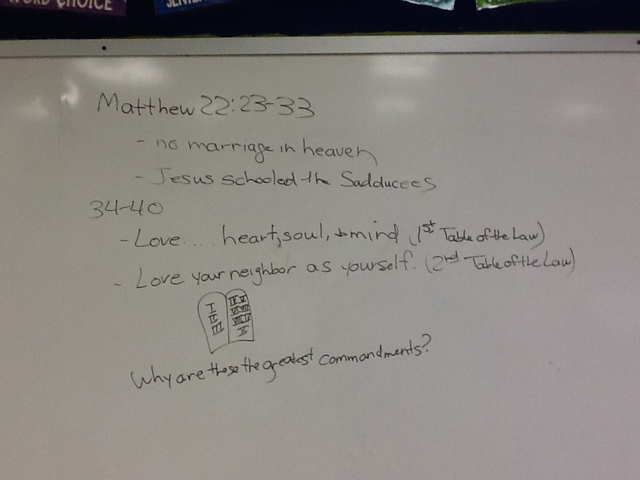 WORD CHOICE
Matthew 22:23-33
- no marriage in heaven
- Jesus schooled the Sadducees
34-40
- Love.... heart, soul, + mind (1st Table of the Law)
- Love your neighbor as yourself. (2nd Table of the Law)
Why are these the greatest commandments?